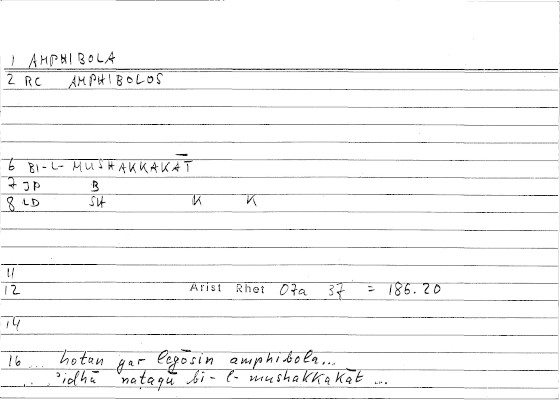 1 AMPHIBOLA
2 RC AMPHIBOLOS
6 BI-L-MUSHAKKAKĀT
7 JP B
8 LD SH K K
11
12 Arist Rhet 07a 37 = 186.20
14
16 ... hotan gar legōsin amphibola...
... ʾidhā nataqū bi-l-mushakkakāt ...